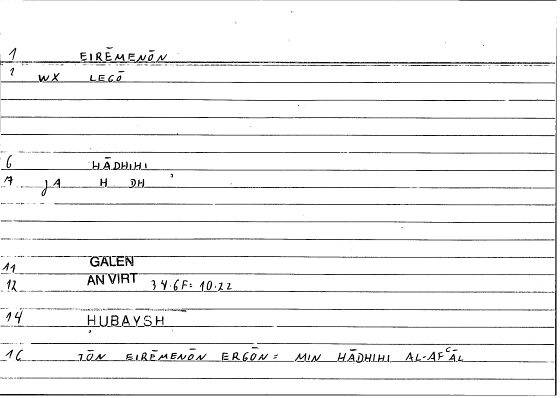 1 EIRĒMENŌN
1 WX LEGŌ
6 HĀDHIHI
7 JA H DH
11 GALEN
12 AN VIRT 34.6F= 10.22
14 HUBAYSH
16 TŌN EIRĒMENŌN ERGŌN= MIN HĀDHIHI AL-AFʿĀL